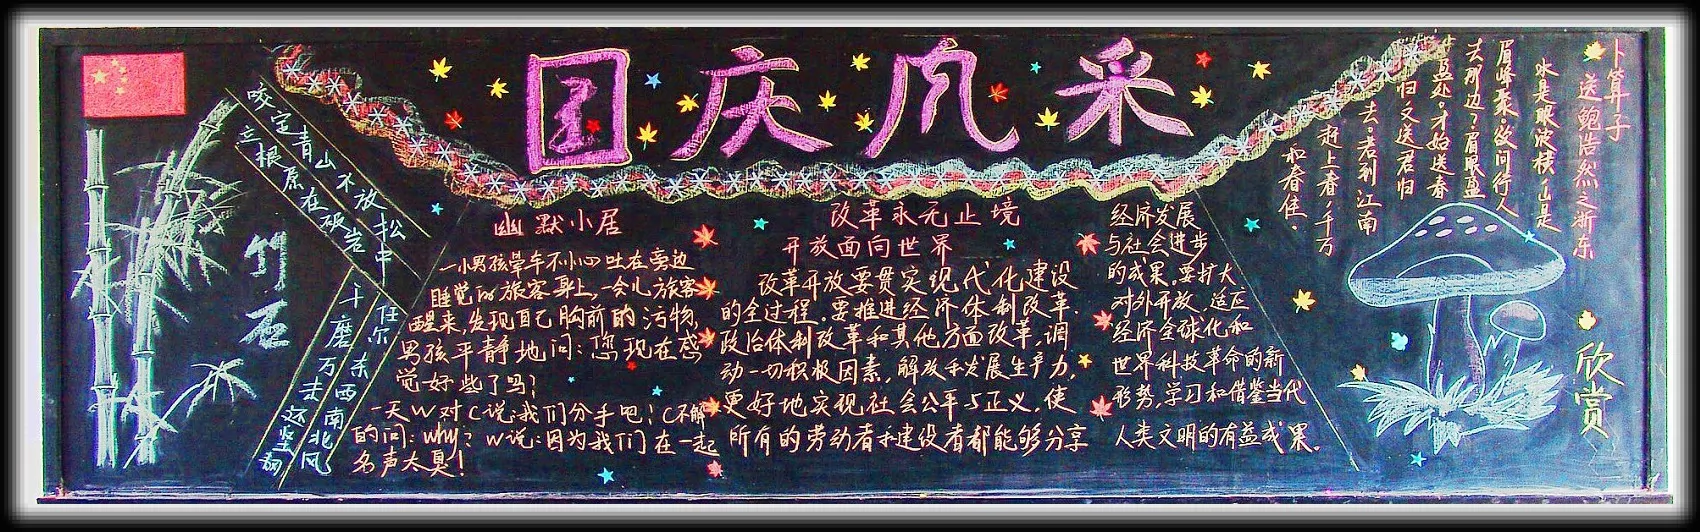 国庆风采
咬定青山不放松中
立根原在破岩
千磨万击还坚韧
任尔东西南北风
竹石
幽默小居
一小男孩晕车不小心吐在旁边
睡觉的旅客身上,一会儿旅客
醒来,发现自己胸前的污物,
男孩平静地问:您现在感
觉好些了吗?
一天W对C说:我们分手吧!C不解
的问:why?W说:因为我们在一起
名声太臭!
改革永无止境
开放面向世界
改革开放要贯实现代化建设
的全过程.要推进经济体制改革.
政治体制改革和其他方面改革,调
动一切积极因素,解放和发展生产力,
更好地实现社会公平与正义,使
所有的劳动者和建设者都能够分享
经济发展
与社会进步
的成果,要扩大
对外开放,适应
经济全球化和
世界科技革命的新
形势,学习和借鉴当代
人类文明的有益成果.
卜算子
送鲍浩然之浙东
水是眼波横,山是
眉峰聚。欲问行人
去那边?眉眼盈
盈处。才始送春
归又送君归
去。若到江南
赶上春,千万
和春住.
欣赏